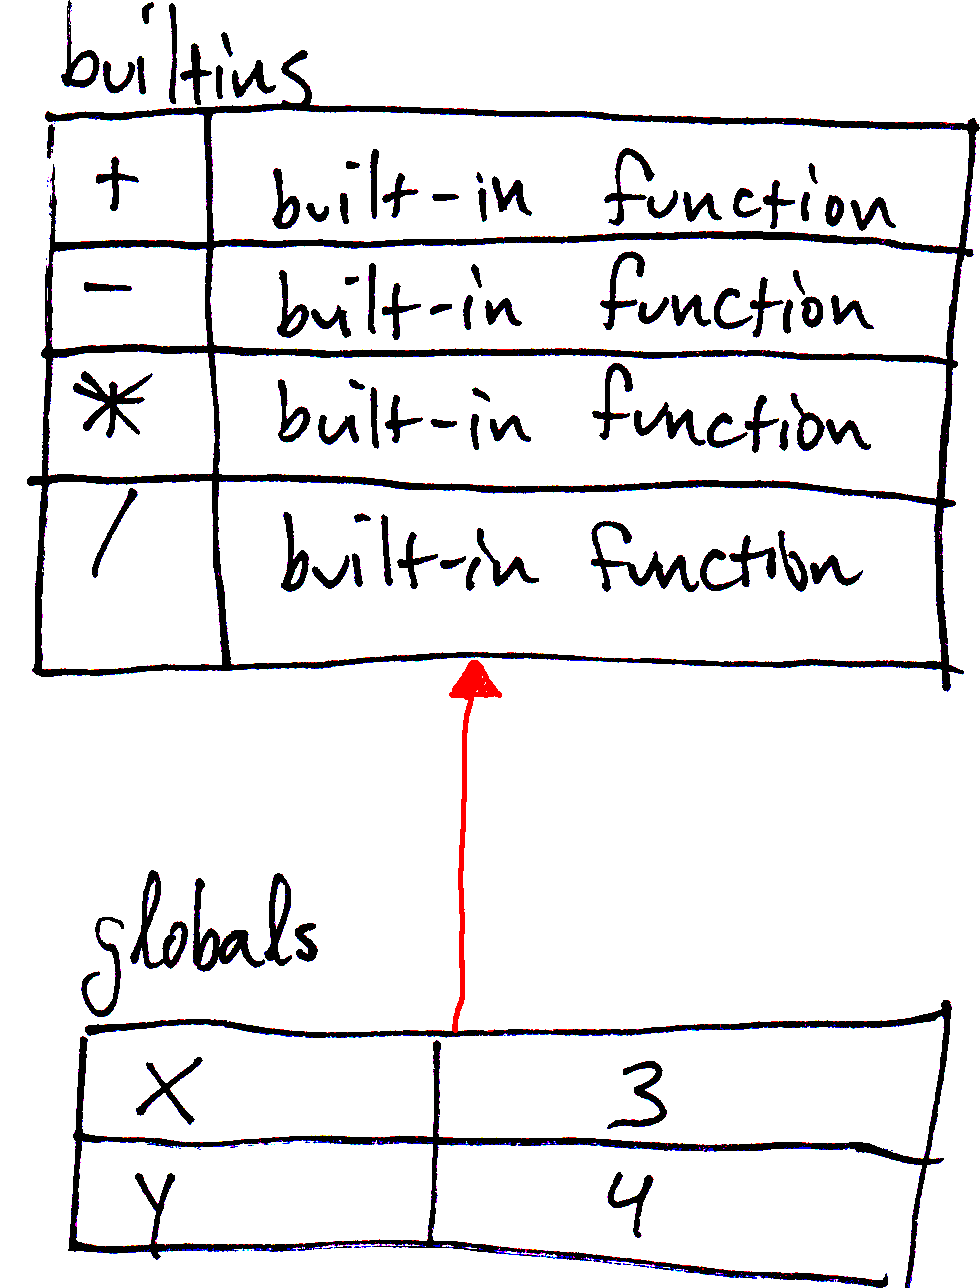 builtins
+ built-in function
- built-in function
* built-in function
/ built-in function
globals
X 3
Y 4